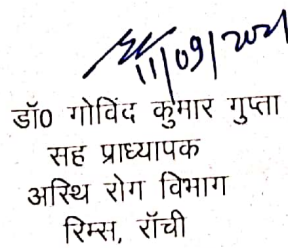 11/09/2021
डॉ0 गोविंद कुमार गुप्ता
सह प्राध्यापक
अस्थि रोग विभाग
रिम्स, राँची